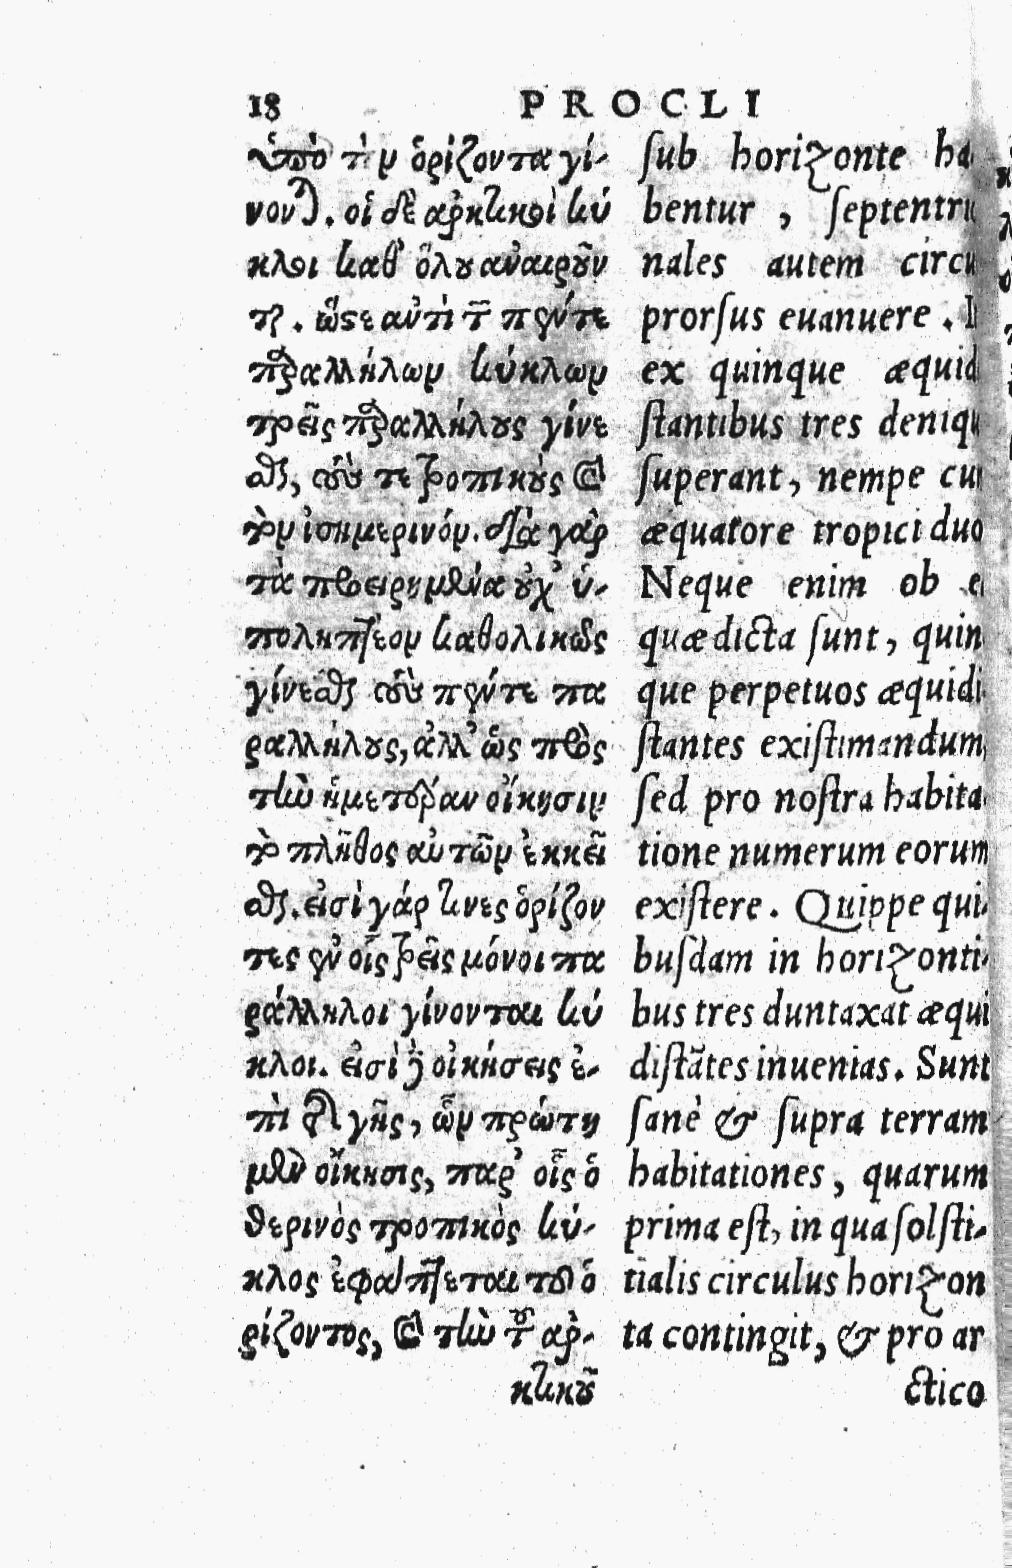 18 PROCLI
ὑπὸ τὸν ὁρίζοντα γί-
νονται. οἱ δὲ ἀρκτικοὶ κύ
κλοι καθ' ὅλου ἀναιροῦν
ται. ὥστε ἀντὶ τῶν πέντε
παραλλήλων κύκλων
τρεῖς παραλλήλους γίνε
σθαι, τούς τε τροπικοὺς καὶ
τὸν ἰσημερινόν. διὰ γὰρ
τὰ προειρημένα οὐχ ὑ-
ποληπτέον καθολικῶς
γίνεσθαι τοὺς πέντε πα
ραλλήλους, ἀλλ' ὡς πρὸς
τὴν ἡμετέραν οἴκησιν
τὸ πλῆθος αὐτῶν ἐκκεῖ
σθαι. εἰσὶ γάρ τινες ὁρίζον
τες ἐν οἷς τρεῖς μόνοι πα
ράλληλοι γίνονται κύ
κλοι. εἰσὶ δὲ οἰκήσεις ἐ-
πὶ τῆς γῆς, ὧν πρώτη
μὲν οἴκησις, παρ' οἷς ὁ
θερινὸς τροπικὸς κύ-
κλος ἐφάπτεται τοῦ ὁ
ρίζοντος, καὶ τὴν τοῦ ἀρ-
κτικοῦ
ſub horizonte ha
bentur, ſeptentrio
nales autem circu
prorſus euanuere.
ex quinque æquid
ſtantibus tres deniqu
ſuperant, nempe cu
æquatore tropici duo
Neque enim ob e
quæ dicta ſunt, quin
que perpetuos æquidi
ſtantes exiſtimandum,
ſed pro noſtra habita
tione numerum eorum
exiſtere. Quippe qui-
buſdam in horizonti-
bus tres duntaxat æqui
diſtãtes inuenias. Sunt
sanè & ſupra terram
habitationes, quarum
prima eſt, in qua ſolſti-
tialis circulus horizon
ta contingit, & pro ar
ctico